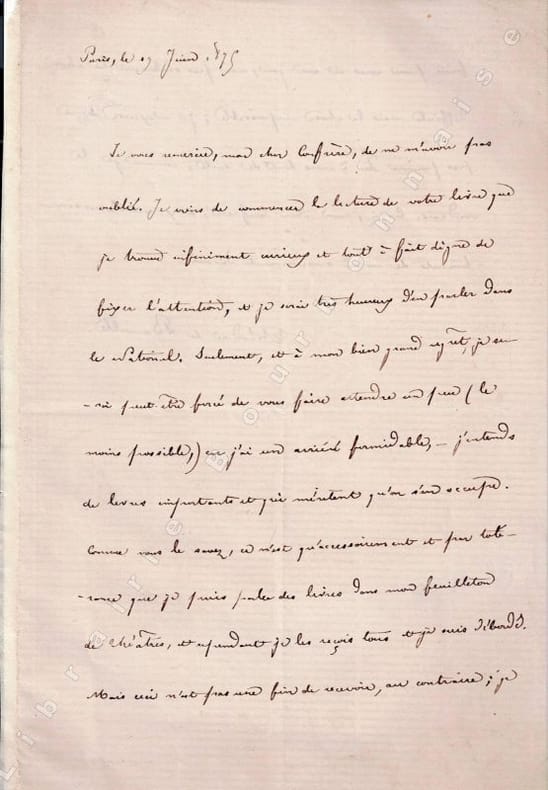 Paris, le 17 Juin 1875
Je vous remercie, mon cher Confrère, de ne m'avoir pas
oublié. Je viens de commencer la lecture de votre livre que
je trouve infiniment curieux et tout à fait digne de
fixer l'attention, et je serai très heureux d'en parler dans
le National. Seulement, et à mon bien grand regret, je se-
-rai peut-être forcé de vous faire attendre un peu (le
moins possible,) car j'ai un arriéré formidable, – j'entends
de livres importants et qui méritent qu'on s'en occupe.
Comme vous le savez, ce n'est qu'accessoirement et par tolé-
-rance que je puis parler des livres dans mon feuilleton
de théâtres, et cependant je les reçois tous et j'en suis débordé.
Mais ceci n'est pas une fin de recevoir, au contraire; je
Librairie Bourbonnaise